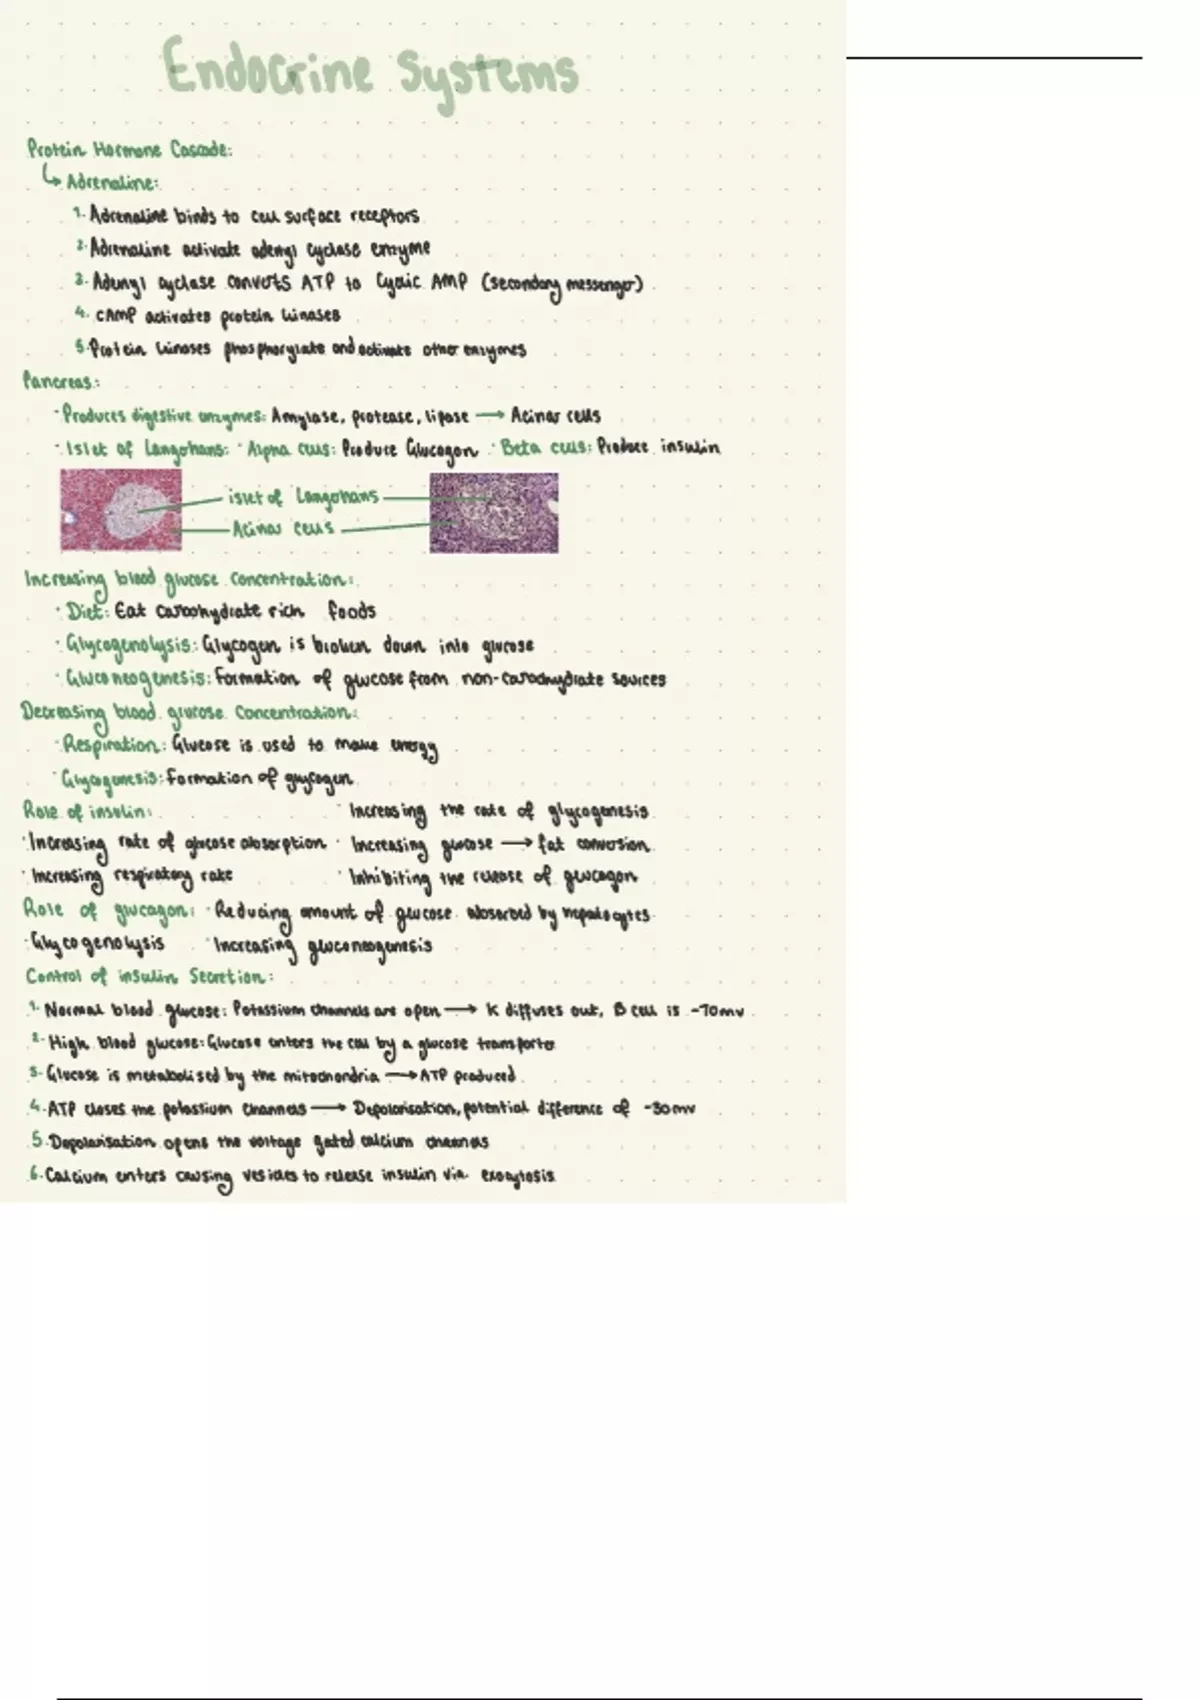 Endocrine Systems
Protein Hormone Cascade:
↳ Adrenaline:
1. Adrenaline binds to cell surface receptors
2. Adrenaline activate adenyl cyclase enzyme
3. Adenyl cyclase converts ATP to Cyclic AMP (secondary messenger)
4. cAMP activates protein kinases
5. Protein kinases phosphorylate and activate other enzymes
Pancreas:
· Produces digestive enzymes: Amylase, protease, lipase → Acinar cells
· Islet of Langohans: · Alpha cells: Produce Glucagon · Beta cells: Produce insulin
islet of Langohans
Acinar cells
Increasing blood glucose concentration:
· Diet: Eat carbohydrate rich foods
· Glycogenolysis: Glycogen is broken down into glucose
· Gluconeogenesis: Formation of glucose from non-carbohydrate sources
Decreasing blood glucose concentration:
· Respiration: Glucose is used to make energy
· Glycogenesis: Formation of glycogen
Role of insulin: · Increasing the rate of glycogenesis
· Increasing rate of glucose absorption · Increasing glucose → fat conversion
· Increasing respiratory rate · Inhibiting the release of glucagon
Role of glucagon: · Reducing amount of glucose absorbed by hepatocytes
· Glycogenolysis · Increasing gluconeogenesis
Control of insulin Secretion:
1. Normal blood glucose: Potassium channels are open → K diffuses out, B cell is -70mv
2. High blood glucose: Glucose enters the cell by a glucose transporter
3. Glucose is metabolised by the mitochondria → ATP produced
4. ATP closes the potassium channels → Depolarisation, potential difference of -30mv
5. Depolarisation opens the voltage gated calcium channels
6. Calcium enters causing vesicles to release insulin via exocytosis